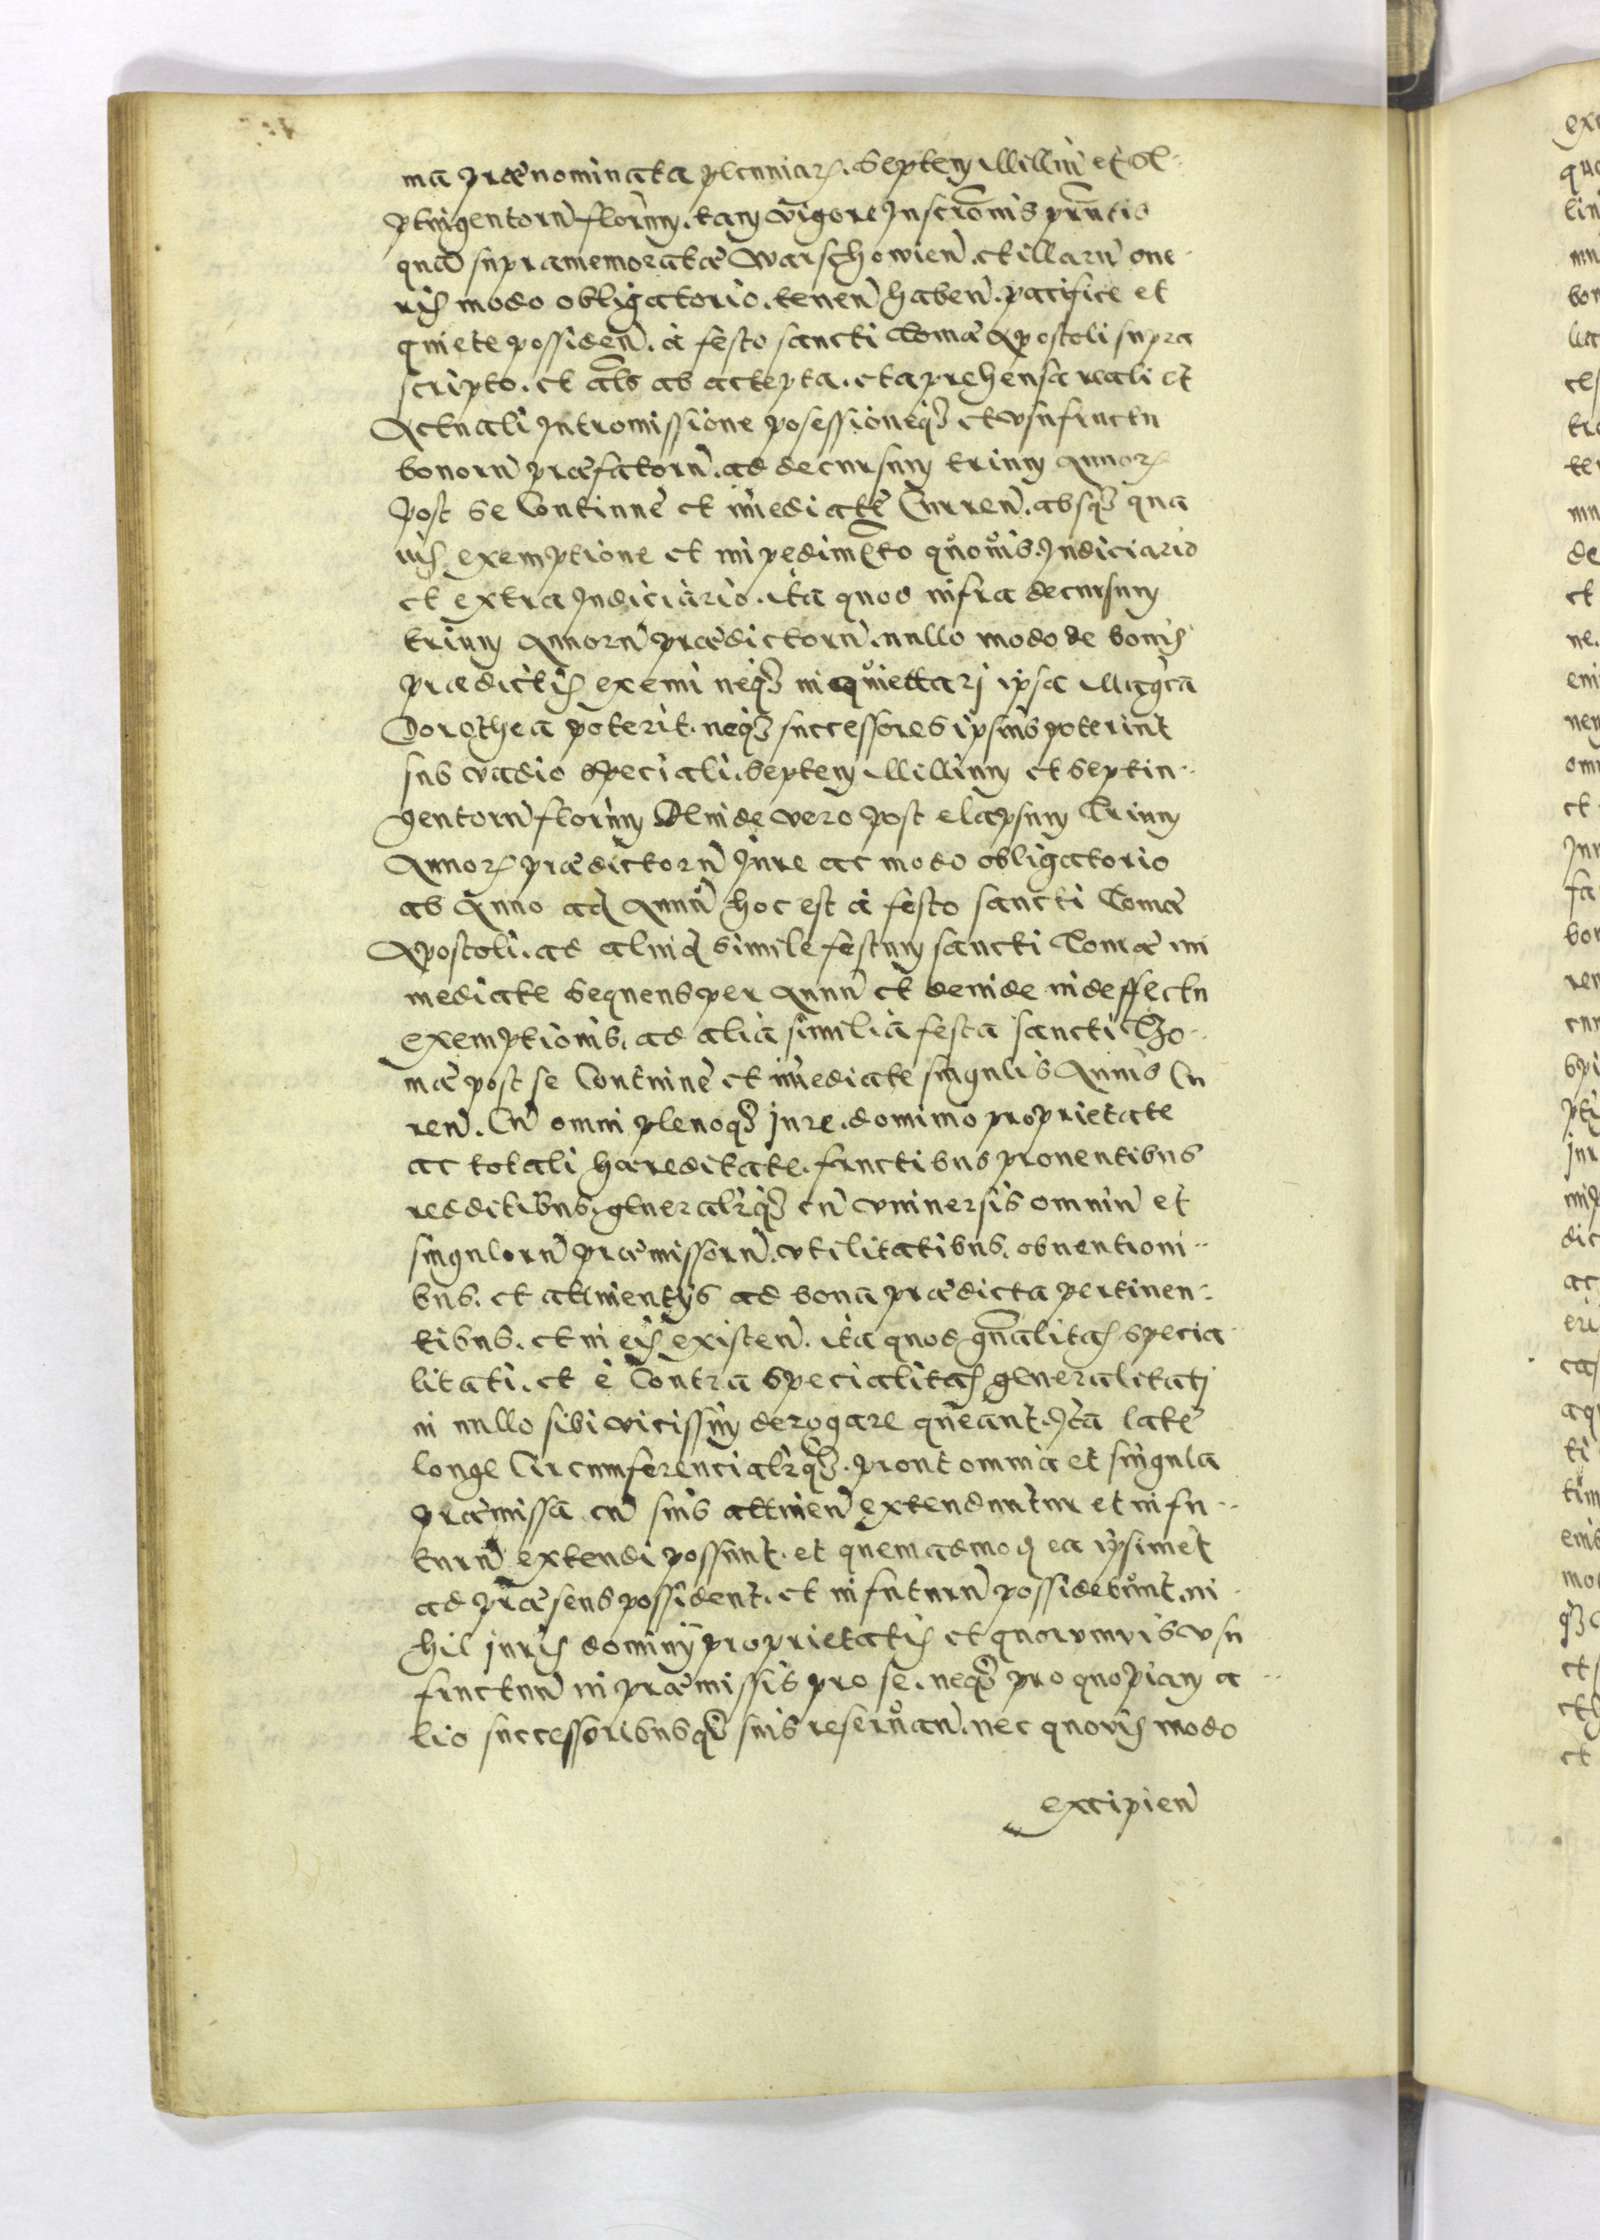 ma prænominata pecuniar. Septem Millium et Se-
ptingentorum florenorum. tam vigore Inscrōnis prntis
quam supramemoratæ Warschowien̄ et illarum one
ris modo obligatorio. tenen̄ haben̄. pacifice et
quiete possiden̄. à festo sancti Tomæ Apostoli supra
scripto. et als ab accepta. et aprehensa reali et
Actuali Intromissione posessioneq₃ et vsufructu
bonorū præfatorū. ad decursum trium Annor
post se Continuè et im̄ediatè Curren̄. absq₃ qua
uis exemptione et impedimēto quouis. Iudiciario
et extraiudiciario. ita quod infra decursum
trium Annorū prædictorū nullo modo de bonis
prædictis eximi neq₃ inquiettari ipsa Magca
Dorothea poterit. neq₃ successores ipsius poterint
sub vadio speciali. Septem Millium et Septin-
gentorū florenorum Deinde vero post elapsum Trium
Annor prædictorū Iure ac modo obligatorio
ab Anno ad Annū hoc est à festo sancti Tomæ
Apostoli. ad aliud simile festum sancti Tomæ im
mediate sequens per Annū et deinde in deffectu
exemptionis. ad alia similia festa sancti Tho-
mæ post se Continuè et im̄ediate singulis Annis Cu
ren̄. Cū omni plenoq₃ iure. dominio proprietate
ac totali hæreditate. fructibus prouentibus
redditibus. generalr̄q₃ cū vniuersis omnium et
singulorū præmissorū. vtilitatibus. obuentioni-
bus. et attinentijs ad bona prædicta pertinen-
tibus. et in eis existen̄. ita quod gn̄alitas specia
litati. et è Contra specialitas generalitati
in nullo sibi vicissim derogare queant. Ita latè
longe Circumferencialr̄q₃. prout omnia et singula
præmissa cū suis attinen̄ extenduntur et in fu-
turum extendi possunt. et quemadmod ea ipsimet
ad præsens possident. et in futurū possidebunt. ni
hil iuris dominij proprietatis et quorumvis vsu
fructuū in præmissis pro se. neq₃ pro quopiam a-
lio successoribusq₃ suis reseruan̄. nec quovis modo
excipien̄